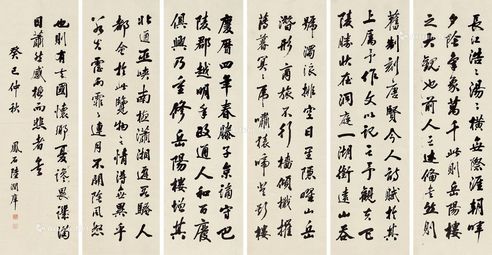 長江浩浩湯湯橫無際涯朝暉
夕陰氣象萬千此則岳陽樓
之大觀也前人之述備矣然則
舊制刻唐賢今人詩賦於其
上屬予作文以記之予觀夫巴
陵勝狀在洞庭一湖銜遠山吞
號濁浪排空日星隱曜山岳
潛形商旅不行檣傾楫摧
薄暮冥冥虎嘯猿啼登斯樓
慶曆四年春滕子京謫守巴
陵郡越明年政通人和百廢
俱興乃重修岳陽樓增其
北通巫峽南極瀟湘遷客騷人
多會於此覽物之情得無異乎
若夫霪雨霏霏連月不開陰風怒
也則有去國懷鄉憂讒畏譏滿
目蕭然感極而悲者矣
癸巳仲秋 鳳石陸潤庠